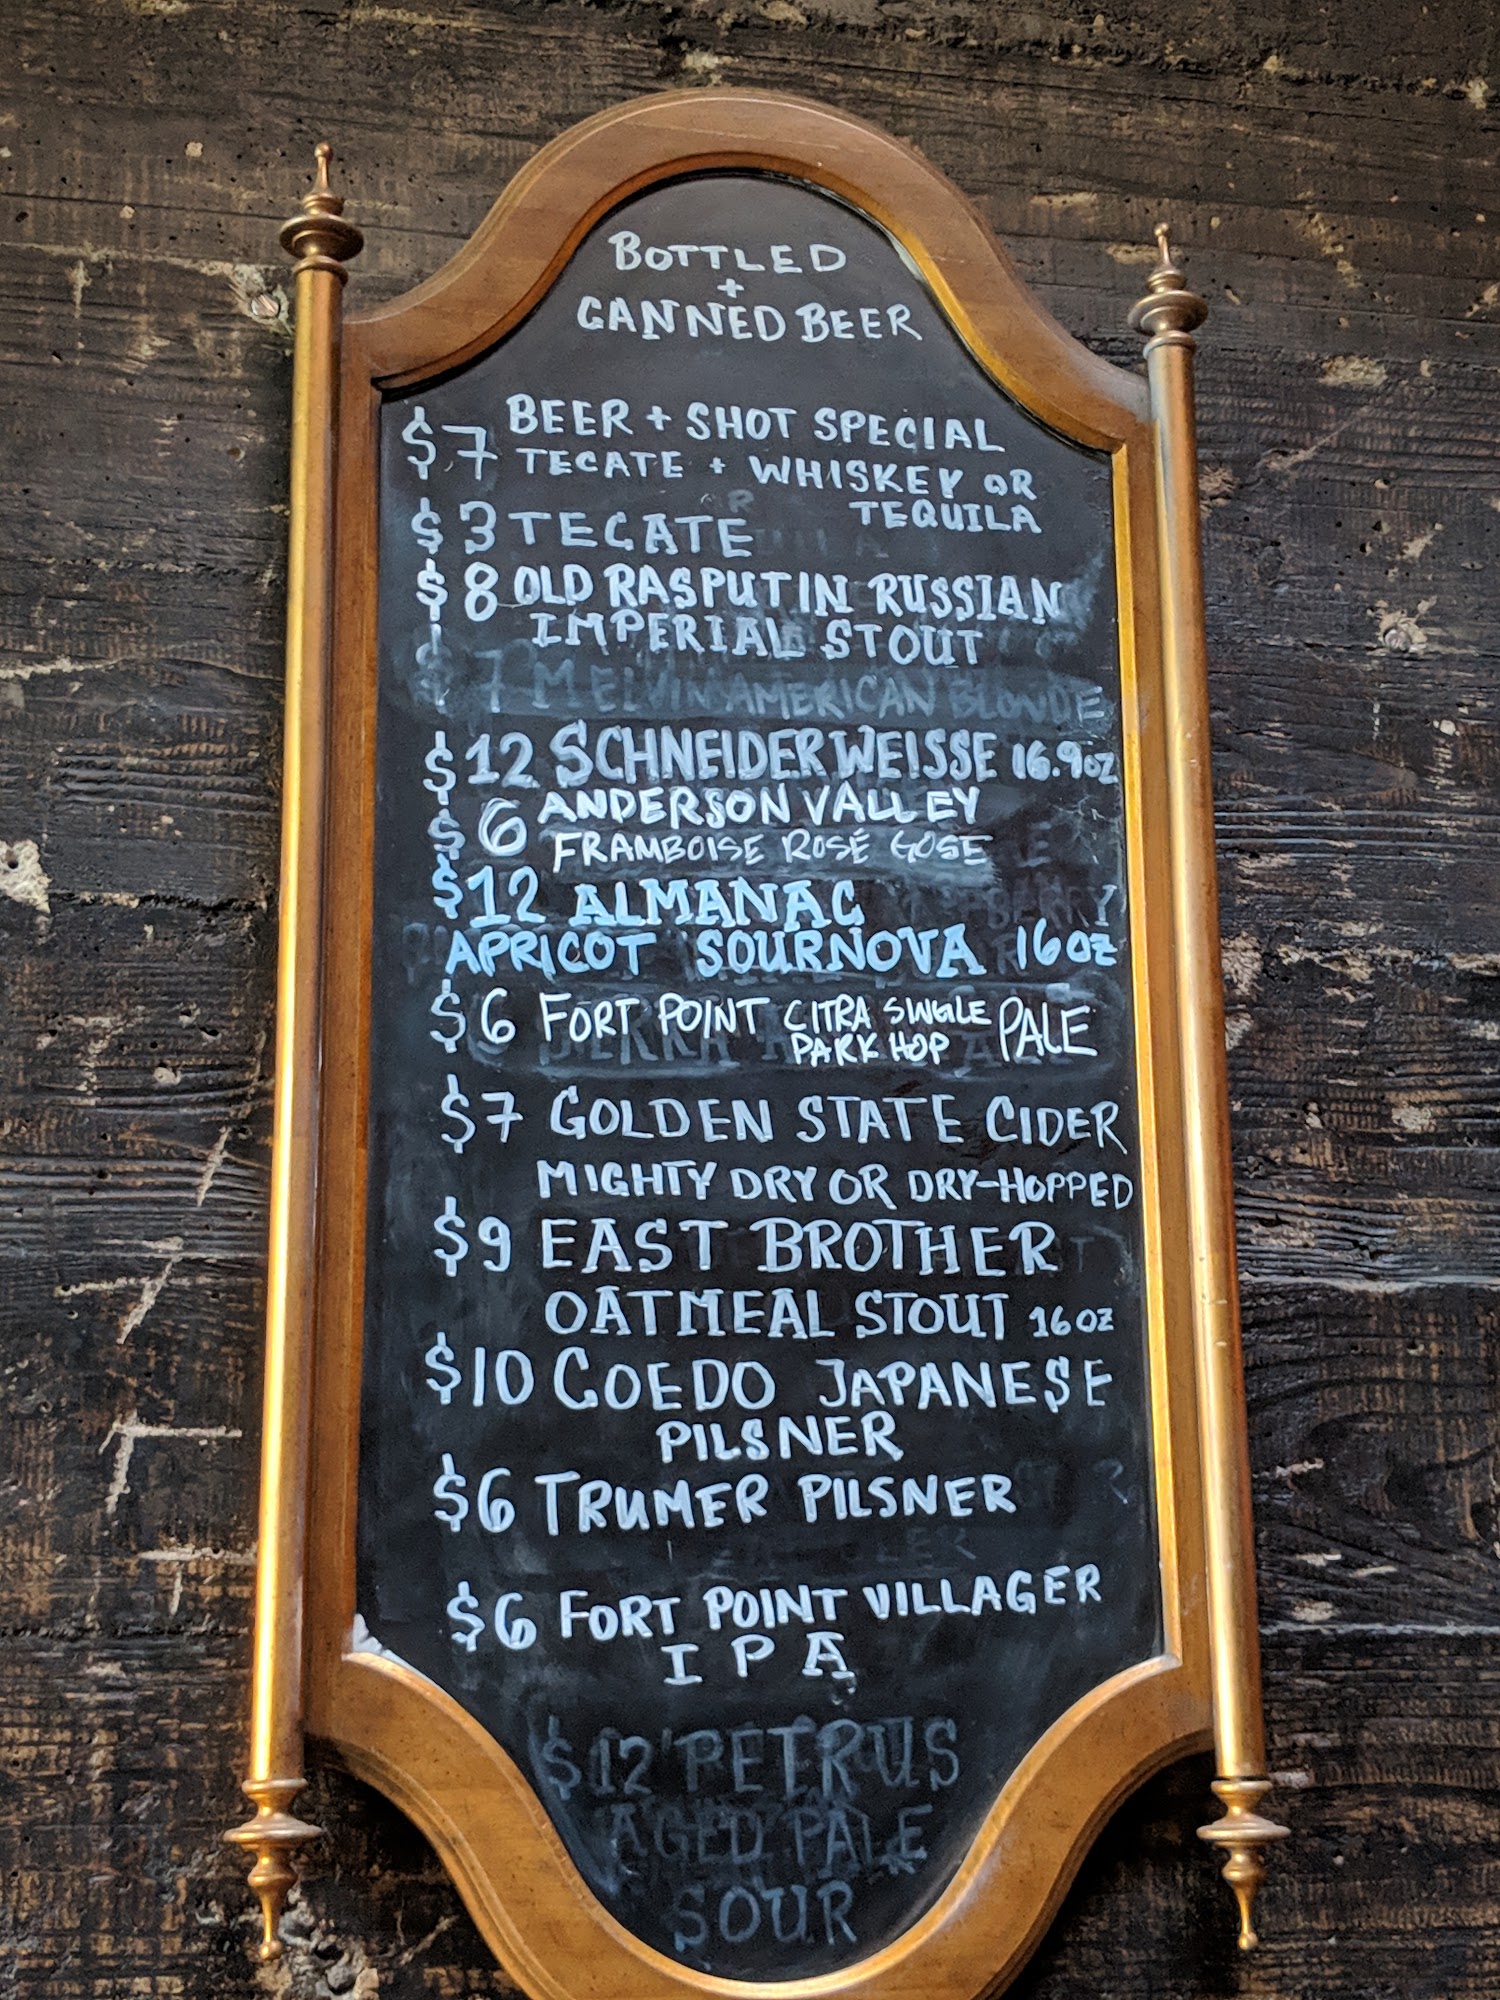 BOTTLED
+
CANNED BEER
$7 BEER + SHOT SPECIAL
TECATE + WHISKEY OR
TEQUILA
$3 TECATE
$8 OLD RASPUTIN RUSSIAN
IMPERIAL STOUT
$7 MELVIN AMERICAN BLONDE
$12 SCHNEIDER WEISSE 16.9oz
$6 ANDERSON VALLEY
FRAMBOISE ROSÉ GOSE
$12 ALMANAC
APRICOT SOURNOVA 16oz
$6 FORT POINT CITRA SINGLE PALE
PARK HOP
$7 GOLDEN STATE CIDER
MIGHTY DRY OR DRY-HOPPED
$9 EAST BROTHER
OATMEAL STOUT 16oz
$10 COEDO JAPANESE
PILSNER
$6 TRUMER PILSNER
$6 FORT POINT VILLAGER
IPA
$12 PETRUS
AGED PALE
SOUR